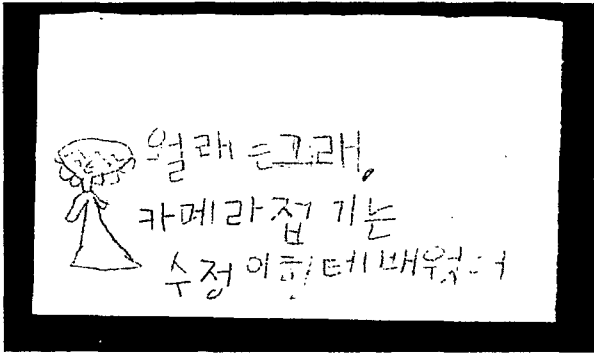 월래는그래,
카메라접기는
수정이한테배웠어